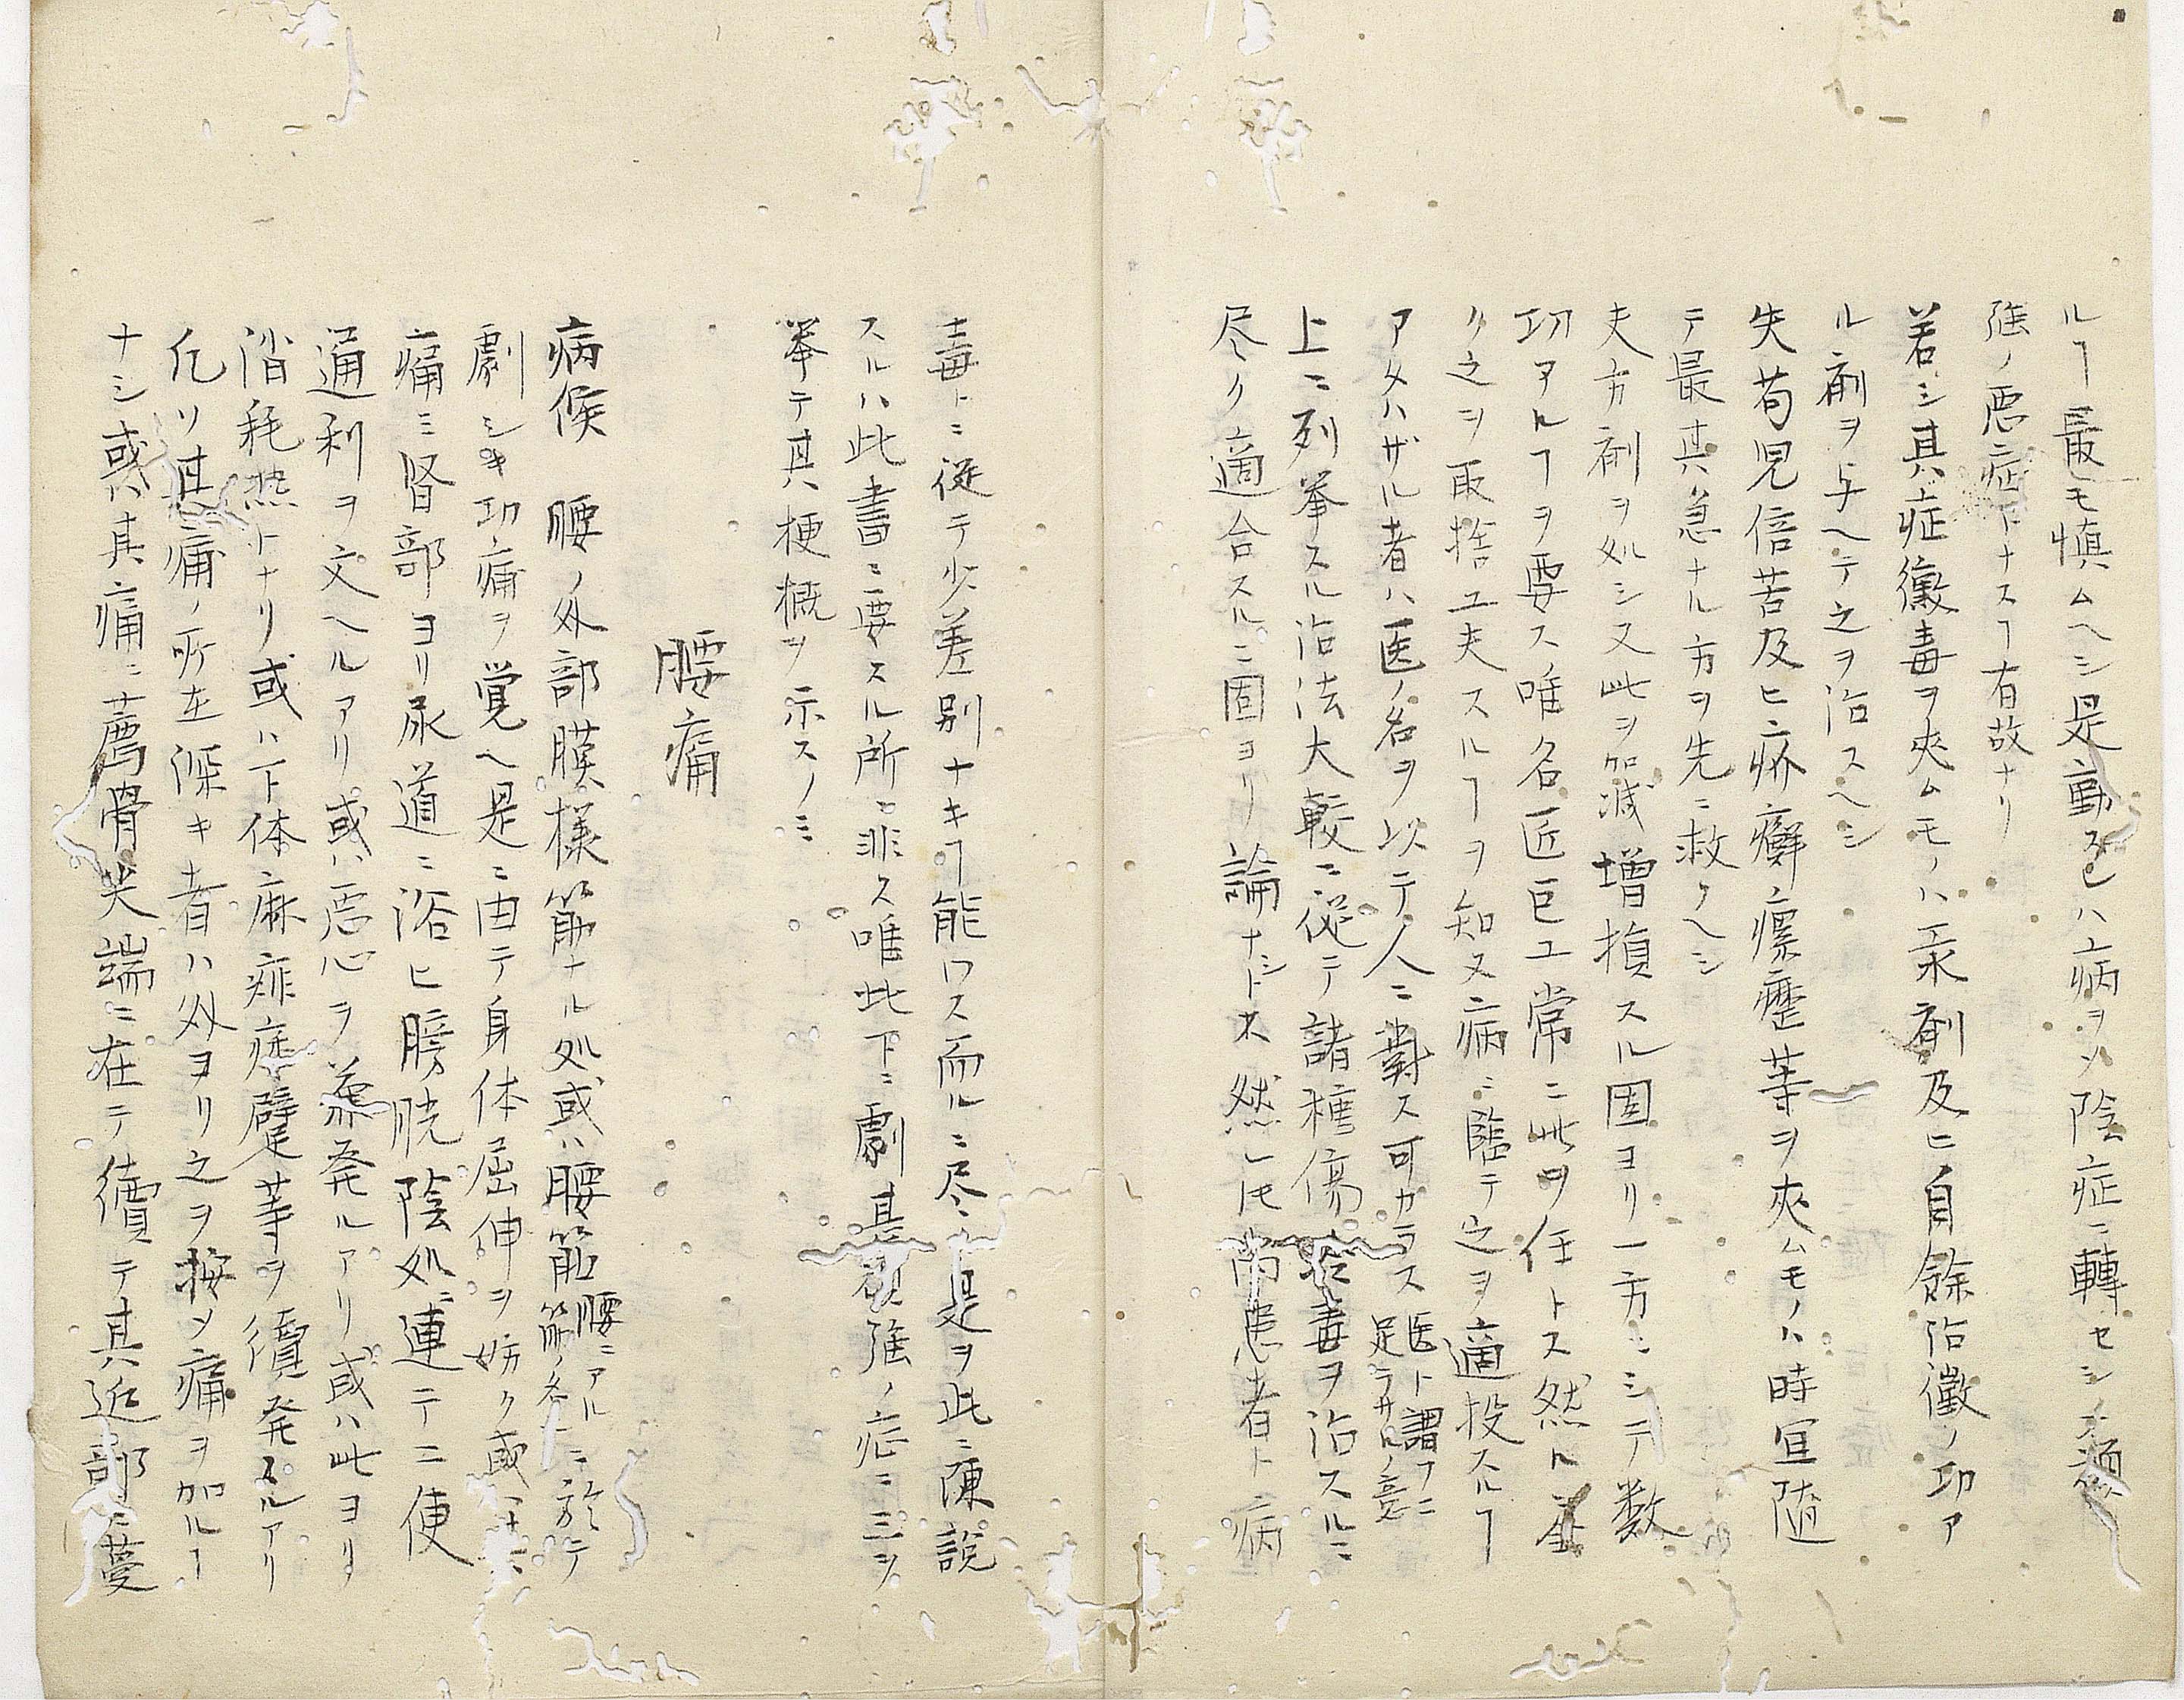 ルヿ最モ慎ムヘシ是動スレハ病ヲ〆陰症ニ轉セシメ頑
強ノ悪症トナスヿ有故ナリ
若シ其症黴毒ヲ夾ムモノハ汞剤及ヒ自餘治黴ノ功ア
ル剤ヲ与ヘテ之ヲ治スヘシ
失苟児倍苦及ヒ疥癬瘰癧等ヲ夾ムモノハ時宜随
テ最其急ナル方ヲ先ニ救クヘシ
夫方剤ヲ処シ又此ヲ加減増損スル固ヨリ一方ニシテ数
功アルヿヲ要ス唯名匠巨工常ニ此ヲ任トス然ト
ク之ヲ取捨工夫スルヿヲ知又病ニ臨テ之ヲ適投スルヿ
アタハザル者ハ医ノ名ヲ以テ人ニ對ス可カラス医ト謂フニ足ラサルノ意
上ニ列挙スル治法大較ニ従テ諸種傷冷毒ヲ治スルニ
尽ク適合スルニ固ヨリ論ナシトス然レ𪜈尚患者ト病
毒トニ従テ少差別ナキヿ能ワス而ルニ尽ク是ヲ此ニ陳説
スルハ此書ニ要スル所ニ非ス唯此下ニ劇甚頑強ノ症ニ三ヲ
挙テ其梗概ヲ示スノミ
腰痛
病候 腰ノ外部膜様筋ナル処或ハ腰筋腰ニアル筋ノ各ニ於テ
劇シキ功痛ヲ覚ヘ是ニ由テ身体屈伸ヲ妨ク或ハ
痛ミ腎部ヨリ尿道ニ浴ヒ膀胱陰処ニ連テ二便
通利ヲ支ヘルアリ或ハ悪心ヲ兼発ルアリ或ハ此ヨリ
消耗熱トナリ或ハ下体麻痱痿躄等ヲ續発スルアリ
凡ソ其痛ノ所在深キ者ハ外ヨリ之ヲ按〆痛ヲ加ルヿ
ナシ或ハ其痛ニ薦骨尖端ニ在テ續テ其近部ニ蔓